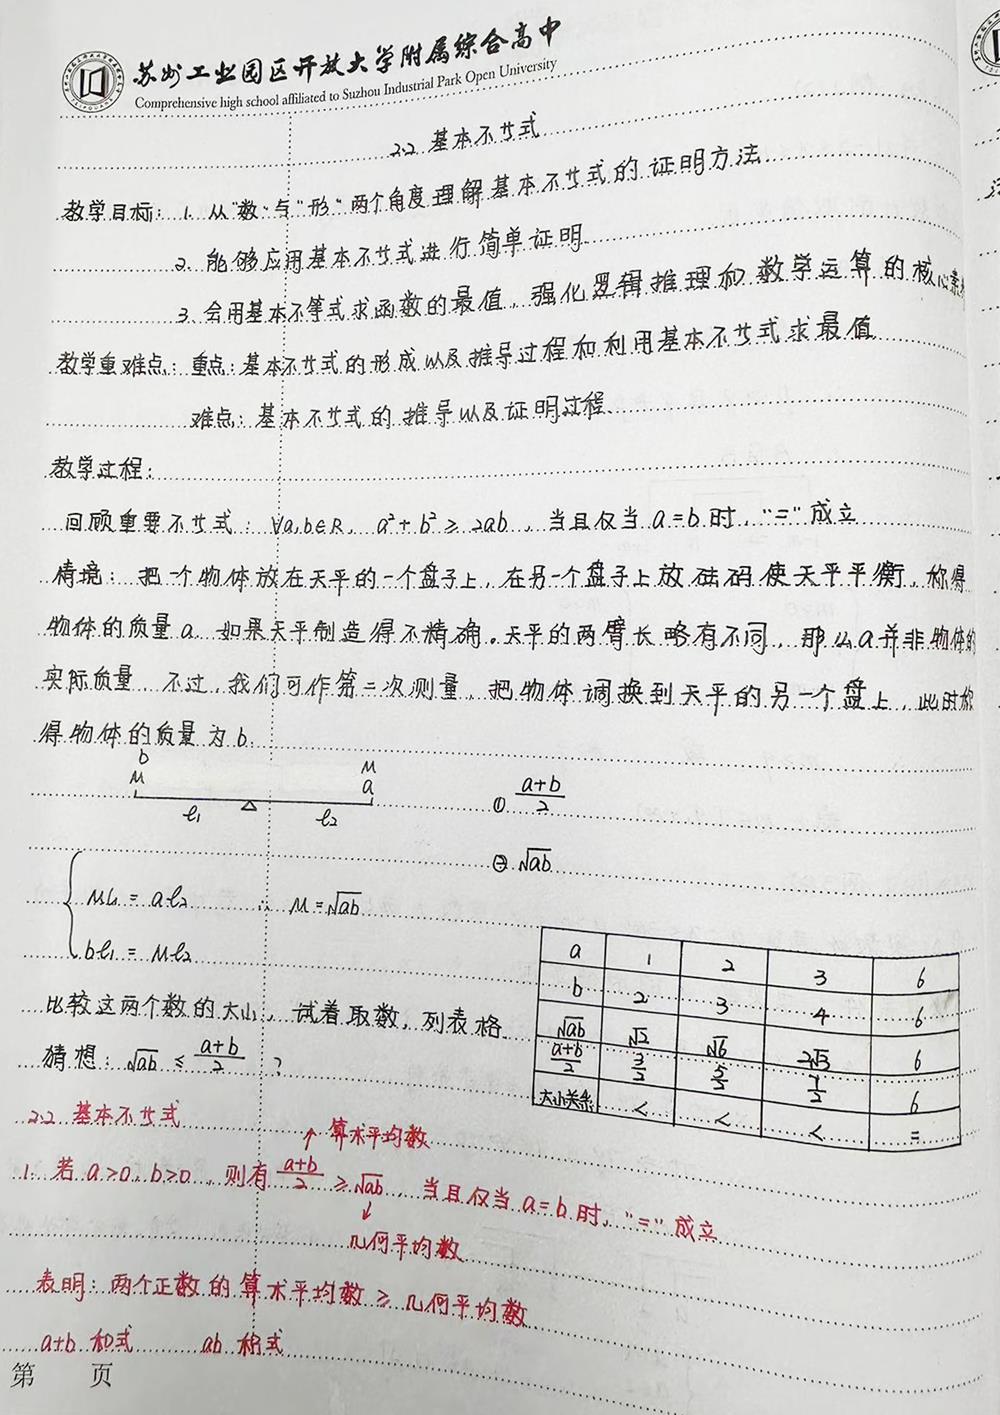 苏州工业园区开放大学附属综合高中
Comprehensive high school affiliated to Suzhou Industrial Park Open University
2.2 基本不等式
教学目标: 1. 从"数"与"形"两个角度理解基本不等式的证明方法.
2. 能够应用基本不等式进行简单证明.
3. 会用基本不等式求函数的最值, 强化逻辑推理和数学运算的核心素
教学重难点: 重点: 基本不等式的形成以及推导过程和利用基本不等式求最值
难点: 基本不等式的推导以及证明过程.
教学过程:
回顾重要不等式: ∀a,b∈R, a²+b²≥2ab, 当且仅当 a=b 时, "=" 成立
情境: 把一个物体放在天平的一个盘子上, 在另一个盘子上放砝码使天平平衡, 称得
物体的质量a. 如果天平制造得不精确. 天平的两臂长略有不同, 那么a并非物体的
实际质量. 不过, 我们可作第二次测量, 把物体调换到天平的另一个盘上, 此时称
得物体的质量为b.
b
M M
a
l₁ l₂
① (a+b)/2
② √ab
Ml₁ = al₂ ∴ M=√ab
bl₁ = Ml₂
a 1 2 3 6
b 2 3 4 6
√ab √2 √6 2√3 6
(a+b)/2 3/2 5/2 7/2 6
大小关系 < < < =
比较这两个数的大小, 试着取数, 列表格.
猜想: √ab ≤ (a+b)/2 ?
2.2 基本不等式
↑ 算术平均数
1. 若 a>0, b>0, 则有 (a+b)/2 ≥ √ab, 当且仅当 a=b 时, "=" 成立
↓
几何平均数
表明: 两个正数的算术平均数 ≥ 几何平均数
a+b 和式 ab 积式
第 页